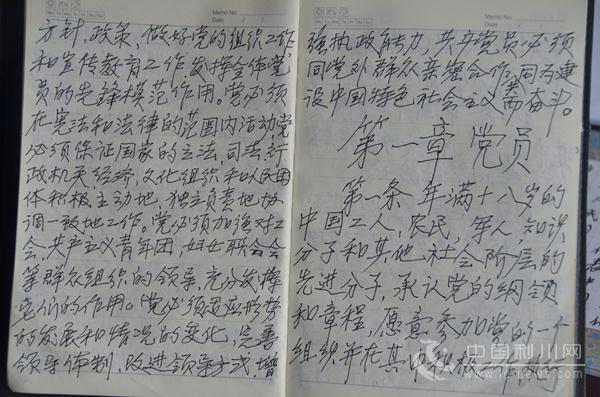 Memo No.
Date
方针,政策,做好党的组织工作
和宣传教育工作,发挥全体党
员的先锋模范作用。党必须
在宪法和法律的范围内活动党
必须保证国家的立法,司法,行
政机关,经济,文化组织和人民团
体积极主动地,独立负责地协
调一致地工作。党必须加强对工
会,共产主义青年团,妇女联合会
等群众组织的领导,充分发挥
它们的作用。党必须适应形势
的发展和情况的变化,完善
领导体制,改进领导方式,增
Memo No.
Date
强执政能力,共产党员必须
同党外群众亲密合作,共同为建
设中国特色社会主义而奋斗。
第一章 党员
第一条 年满十八岁的
中国工人,农民,军人,知识
分子和其他社会阶层的
先进分子,承认党的纲领
和章程,愿意参加党的一个
组织并在其中积极工作
中国利川网